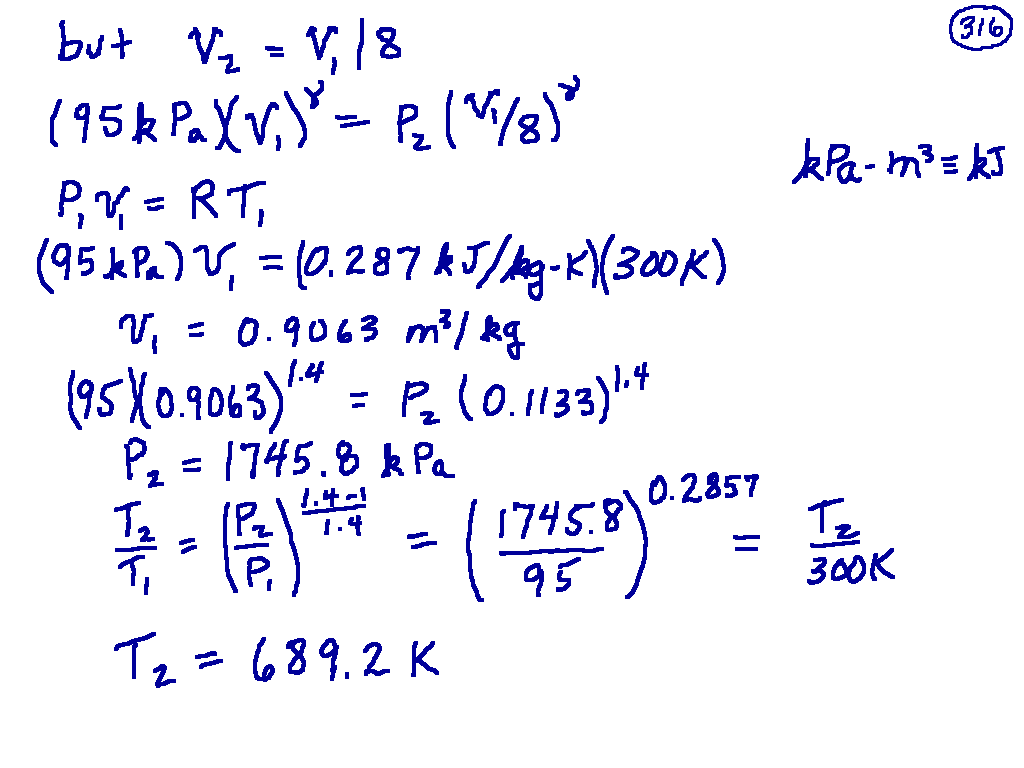 316
but v₂ = v₁/8
(95 kPa)(v₁)^γ = P₂ (v₁/8)^γ
kPa-m³ ≡ kJ
P₁v₁ = RT₁
(95 kPa) v₁ = (0.287 kJ/kg-K)(300K)
v₁ = 0.9063 m³/kg
(95)(0.9063)^1.4 = P₂ (0.1133)^1.4
P₂ = 1745.8 kPa
T₂/T₁ = (P₂/P₁)^((1.4-1)/1.4) = (1745.8/95)^0.2857 = T₂/300K
T₂ = 689.2 K